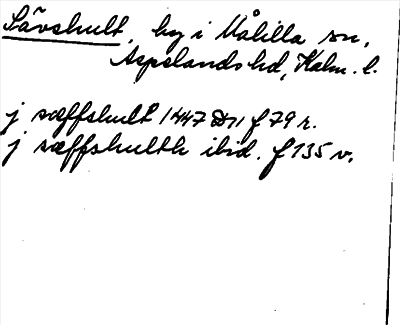 Sävshult, by i Målilla sn,
Aspelands hd, Kalm. l.
j sæffshult 1447 D 11 f 79 r.
j sæffshulth ibid. f 135 v.